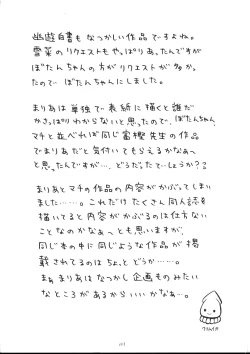 幽遊白書もなつかしい作品ですよね。
雪菜のリクエストもやっぱりあったんですが
ぼたんちゃんの方がリクエストが多か。
たので ぼたんちゃんにしました。
まりあは単独で表紙に描くと誰だ
かさっぱりわからないと思ったので、ぼたんちゃん
マチと並べれば同じ冨樫先生の作品
でまりあだと気付いてもらえるかなぁ〜
と思ったんですが…、どうだったでしょうか??
まりあとマチの作品の内容がかぶってしまい
ました……。これだけたくさん同人誌を
描いてると内容がかぶるのは仕方ない
ことなのかなぁ〜とも思いますが、
同じ本の中に同じような作品が掲
載されてるのはちょっとどうか…。
まぁまりあはなつかし企画ものみたい
なところがあるからいいかなぁ…。